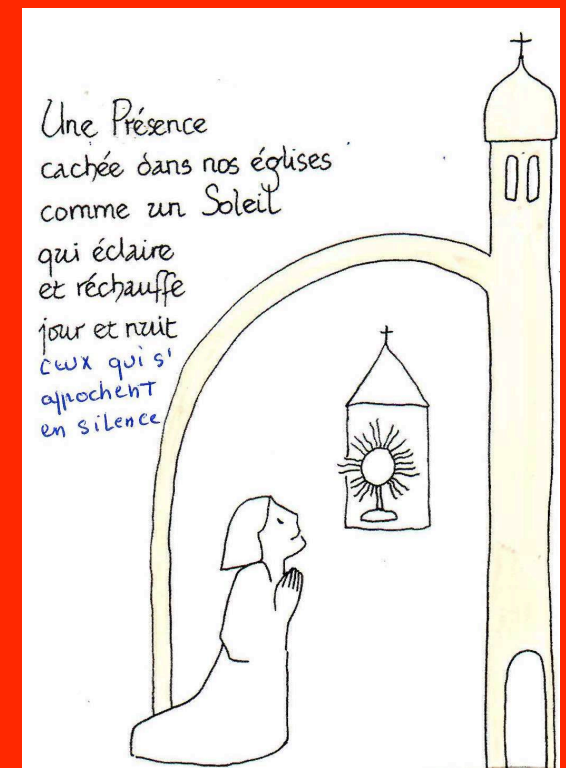 Une Présence
cachée dans nos églises
comme un Soleil
qui éclaire
et réchauffe
jour et nuit
ceux qui s'
approchent
en silence